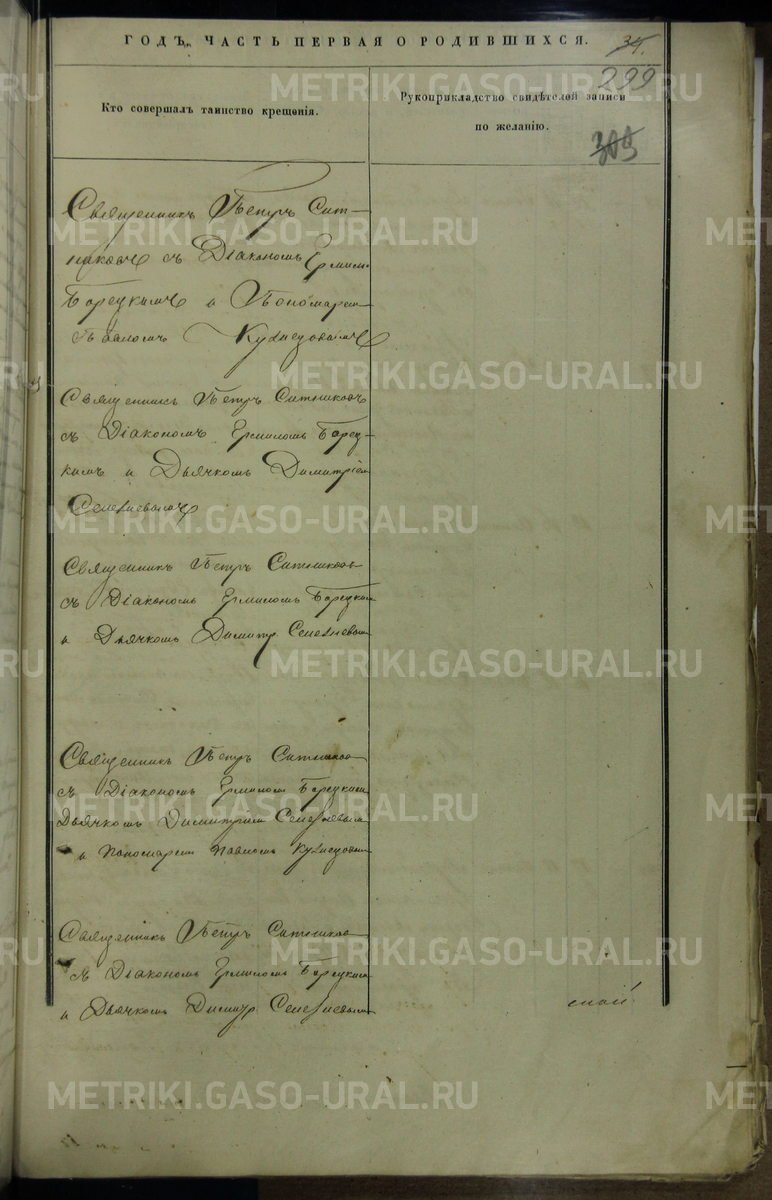 ГОДЪ, ЧАСТЬ ПЕРВАЯ О РОДИВШИХСЯ.
34.
299
Кто совершалъ таинство крещенія.
Рукоприкладство свидѣтелей записи
по желанію.
Священникъ Петръ Сит-
никовъ съ Діакономъ Ермил.
Борецкимъ и Пономарем
Павломъ Кузнецовымъ
Священникъ Петръ Ситниковъ
съ Діакономъ Ермиломъ Борец-
кимъ и Дьячкомъ Димитріем
Селезневымъ
Священникъ Петръ Ситников
съ Діакономъ Ермиломъ Борецким
и Дьячкомъ Димитр Селезневым
Священникъ Петръ Ситников
съ Діакономъ Ермилом Борецким
Дьячкомъ Димитрием Селезневым
и Пономарем Павлом Кузнецовым
Священникъ Петръ Ситников
съ Діакономъ Ермиломъ Борецким
и Дьячкомъ Димитр Селезневым
METRIKI.GASO-URAL.RU